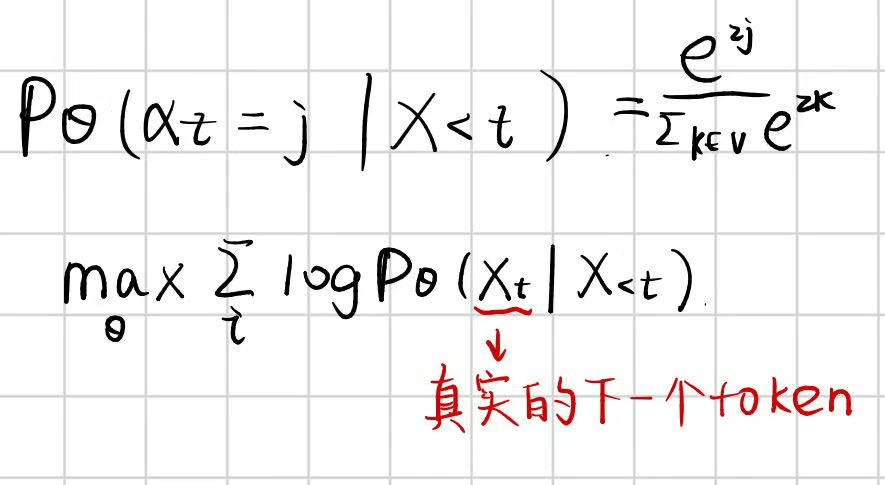 Pθ(αt = j | X<t) = e^zj / Σk∈V e^zk
max θ Σ t log Pθ(Xt | X<t)
真实的下一个token